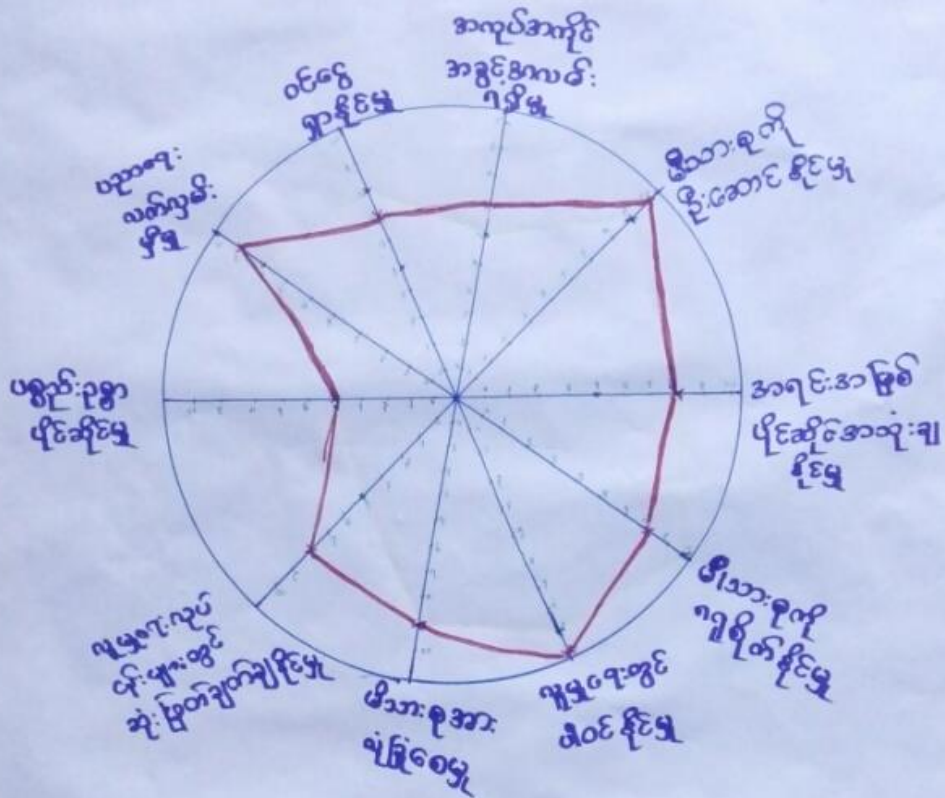 အလုပ်အကိုင်
အခွင့်အလမ်း
ရရှိမှု
မိသားစုကို
ဦးဆောင်နိုင်မှု
အရင်းအမြစ်
ပိုင်ဆိုင်အသုံးချ
နိုင်မှု
မိသားစုကို
ရှာဖွေ
လူမှုရေးတွင်
ပါဝင်နိုင်မှု
မိသားစုအား
ယုံကြည်စေမှု
လူမှုရေးလုပ်
ငန်းများတွင်
ဆုံးဖြတ်ချက်ချနိုင်မှု
ပစ္စည်းဥစ္စာ
ပိုင်ဆိုင်မှု
ပညာရေး
လက်လှမ်း
မှီမှု
ဝင်ငွေ
ရှာနိုင်မှု